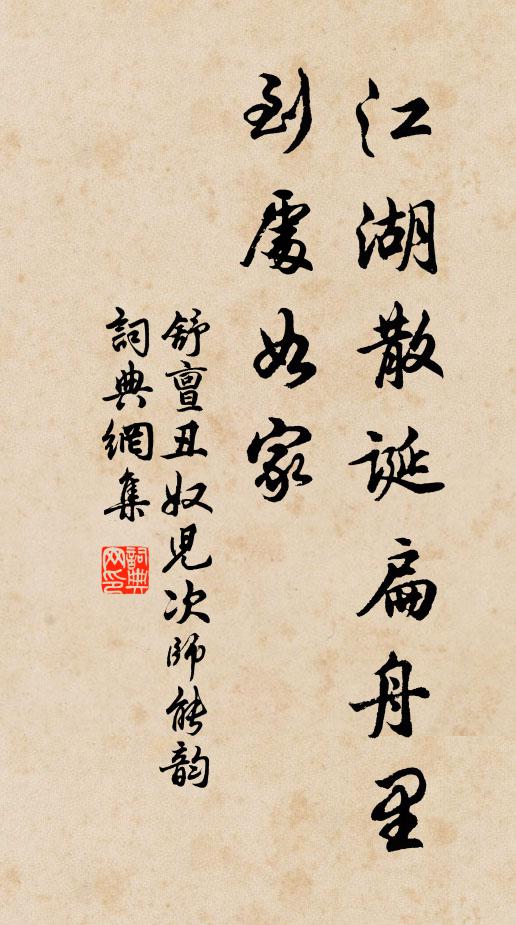 江湖散誕扁舟里
到處如家
舒亶丑奴兒次師能韵
詞典網集
詞典網印